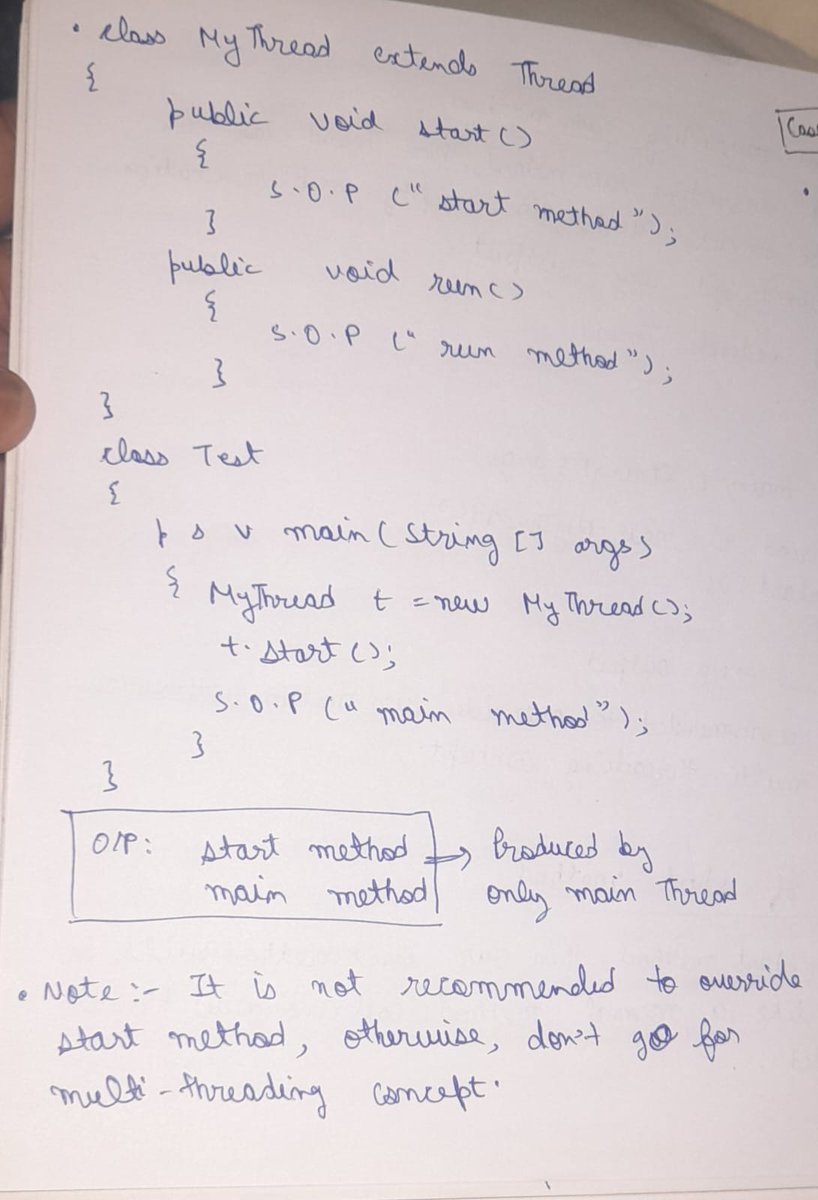 • class MyThread extends Thread
{
public void start()
{
S.O.P ("start method");
}
public void run()
{
S.O.P ("run method");
}
}
class Test
{
p s v main(String [] args)
{ MyThread t = new MyThread();
t.start();
S.O.P ("main method");
}
}
O/P: start method → Produced by
main method only main Thread
• Note :- It is not recommended to override
start method, otherwise, don't go for
multi-threading concept.